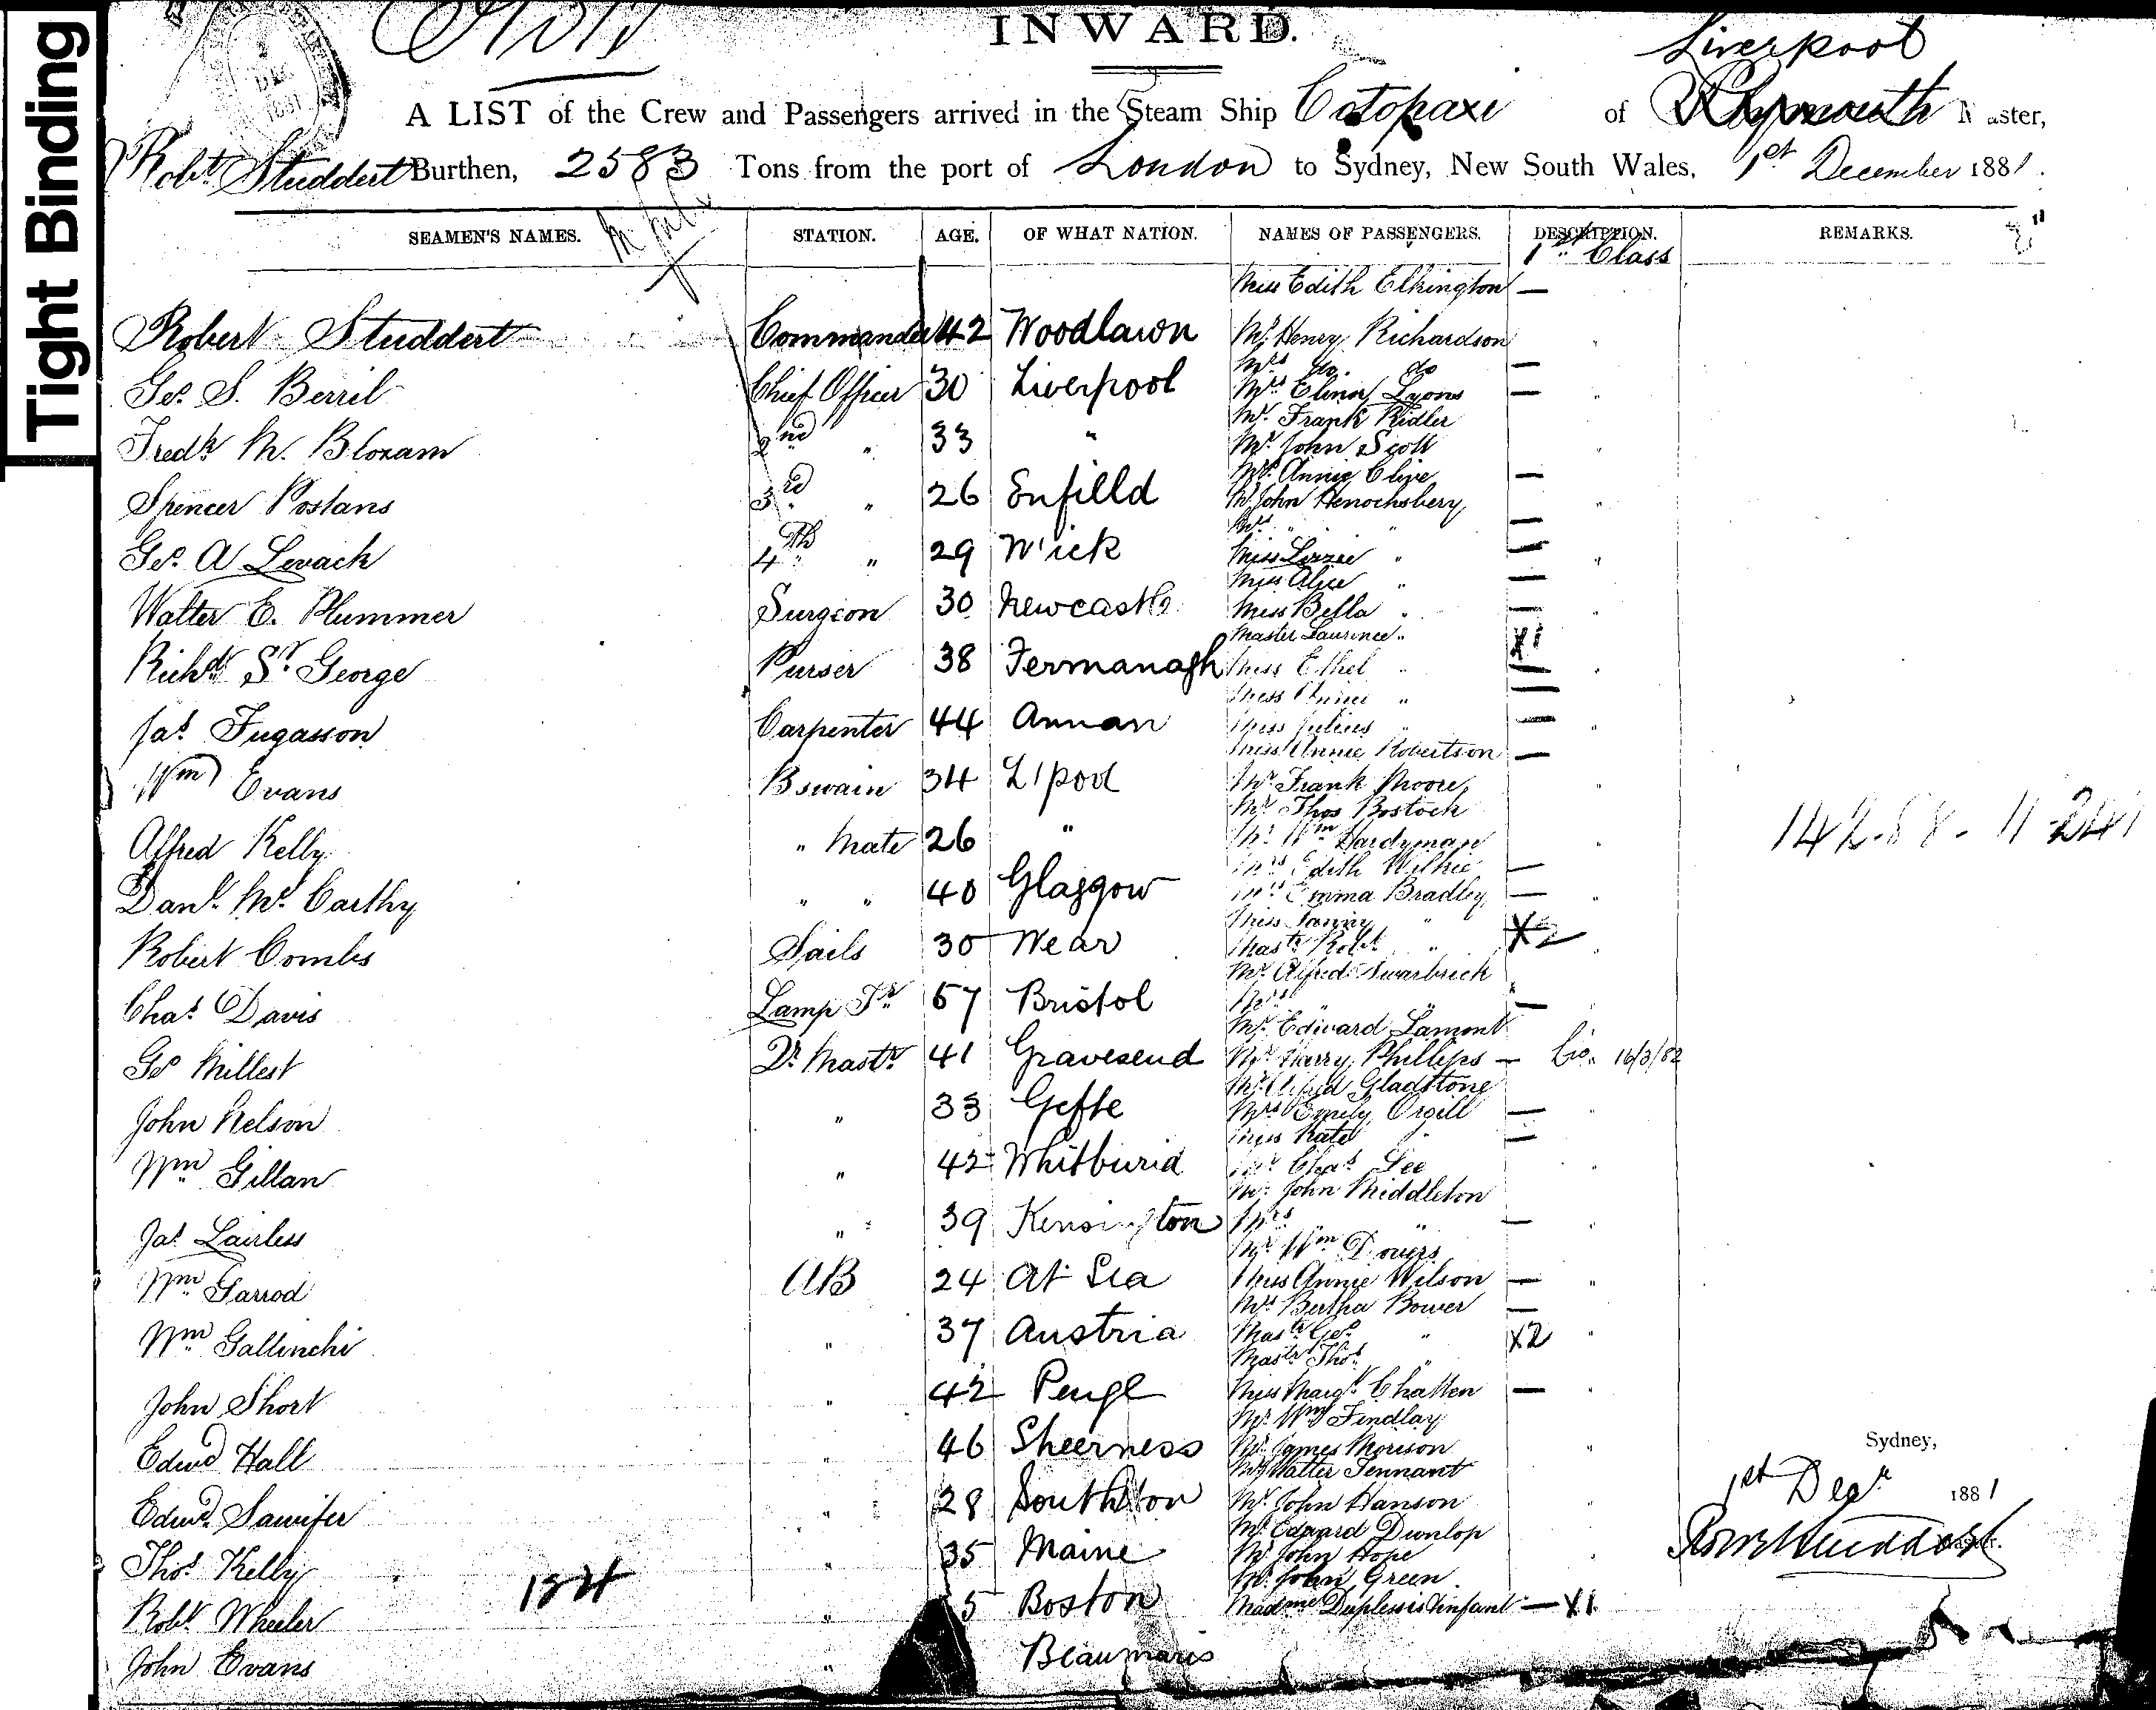 Tight Binding
INWARD.
Liverpool
A LIST of the Crew and Passengers arrived in the Steam Ship Cotopaxi of Plymouth Master,
Robt Studdert Burthen, 2583 Tons from the port of London to Sydney, New South Wales, 1st December 1881.
SEAMEN'S NAMES. STATION. AGE. OF WHAT NATION. NAMES OF PASSENGERS. DESCRIPTION. REMARKS.
1st Class
Miss Edith Elkington —
Robert Studdert Commander 42 Woodlawn Mr Henry Richardson
Mrs do. do —
Geo. S. Berril Chief Officer 30 Liverpool Mrs Elinor Lyons —
Mr. Frank Ridler
Fredk M. Bloxam 2nd " 33 " Mr John Scott
Mrs Annie Clive —
Spencer Postans 3rd " 26 Enfilld Mr John Henochsbery
Mrs " " —
Geo. A Levach 4th " 29 Wick Miss Lizzie " —
Miss Alice " —
Walter E. Plummer Surgeon 30 Newcastle Miss Bella " —
Master Laurence " X1
Richd St George Purser 38 Fermanagh Miss Ethel " —
Miss "  —
Jas Fugasson Carpenter 44 Annan Miss " —
Miss Annie Robertson —
Wm Evans Bswain 34 L'pool Mr Frank Moore
Mr Thos Bostock
Alfred Kelly " Mate 26 " Mr Wm Hardyman
Mrs Edith Wilkie —
Danl. Mc. Carthy " " 40 Glasgow Mrs Emma Bradley —
Miss Fanny "
Robert Combs Sails 30 Wear Mastr Robt " X2
Mr Alfred Swarbrick
Chas Davis Lamp Tr 57 Bristol Mrs " " —
Mr. Edward Lamont
Geo Millest Qr Mastr 41 Gravesend Mr Harry Phillips — 16/3/82
Mr Alfred Gladstone
John Nelson " 33 Gefle Mrs Emily Orgill —
Miss Kate " —
Wm Gillan " 42 Mr Chas Lee
Mr. John Middleton
Jas Lairless " 39 Kensington Mrs " —
Mr Wm Dovers
Wm Garrod AB 24 At Sea Miss Annie Wilson —
Mrs Bertha Bower —
Wm Gallinchi " 37 Austria Mastr Geo " X2
Mastr Thos "
John Short " 42 Miss Margt Chatten —
Mr. Wm Findlay
Edwd Hall " 46 Sheerness Mr. James Morison
Mr Walter Tennant
Edwd " 28 Southton Mr. John Hanson
Mr. Edward Dunlop
Thos Kelly " 35 Maine Mr John Hope
Mr. John Green
Robt Wheeler " 5 Boston Madme Duplessis & infant — X1
John Evans " Beaumaris
Sydney,
1st Decr 1881
Master.